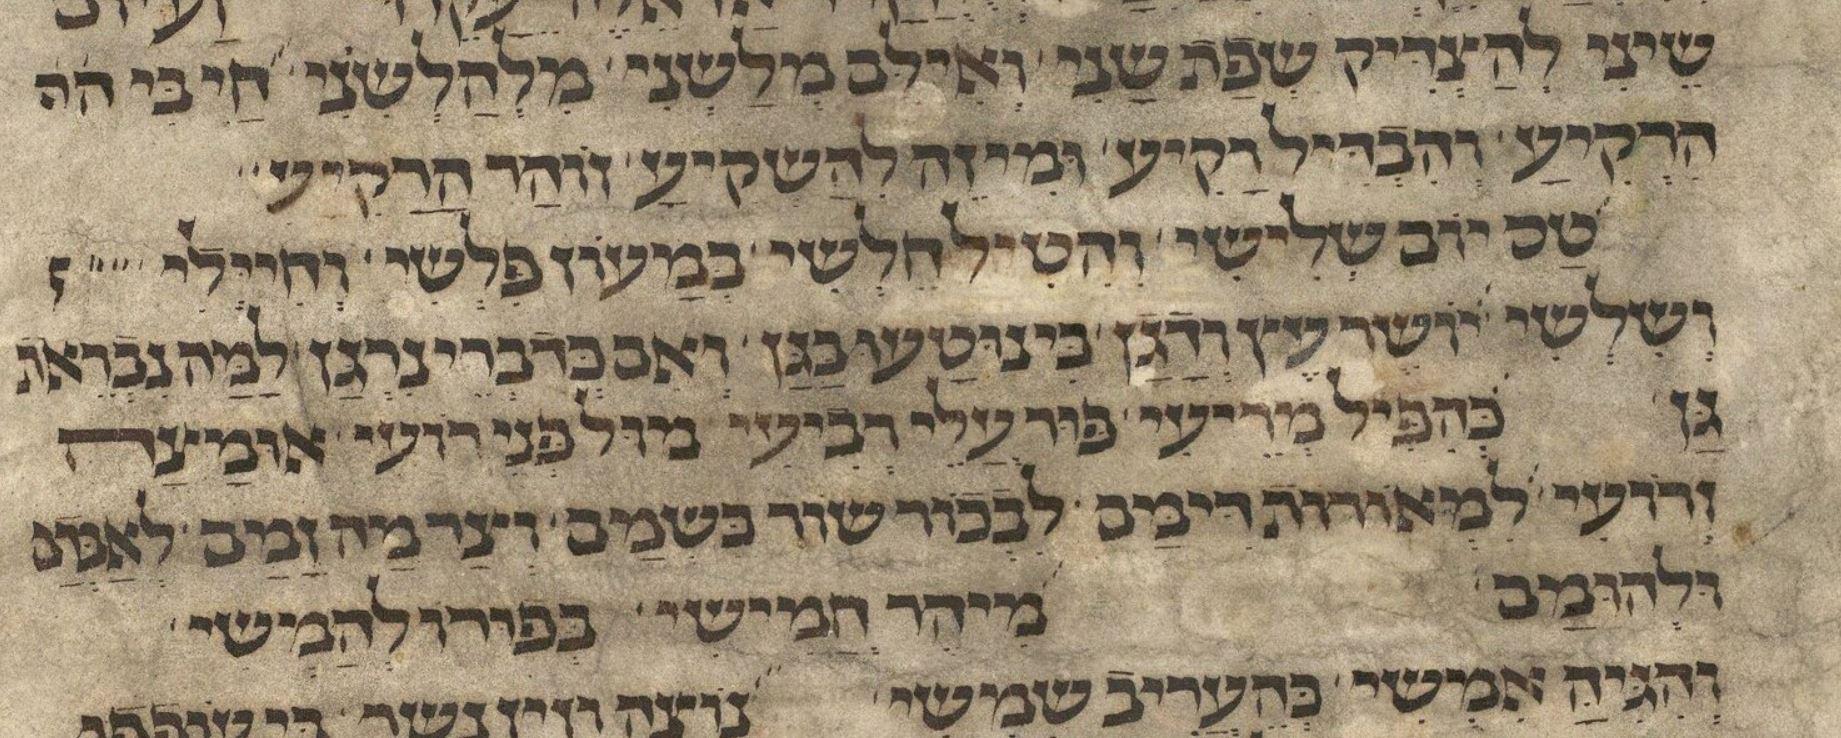 שֶׁיָצִי לְהַצְדִיק שְׂפַת שָׁנִי׳ וְאִילֵם מְלַשְׁנִי׳ מִלְהַלְשִׁנִי׳ חַי בִּי הֹר
הַרְקִיעַ׳ וְהִבְדִיל רָקִיעַ׳ וּמִיזֶה לְהַשְׁקִיעַ׳ זוֹהַר הָרָקִיעַ׳
טַס יוֹם שְׁלִישִׁי׳ וְהִטִיל חֲלָשַׁי׳ בְּמָעוֹן פְּלָשַׁי׳ וְחִיְילַי
וְשִׁלְשִׁי׳ יוֹשֶׁר עֵץ וְדָגָן׳ כִּי נוּטְעוּ בַגָן׳ וְאִם כְּדִבְרֵי נִרְגָן׳ לָמָה נִבְרֵאת
גַן כְּהִפִּיל מְרִיעִי׳ פּוּר עָלַי רְבִיעִי׳ מוּל פְּנֵי רוֹעִי׳ אוּמְצָה
וְרוֹעִי׳ לִמְאוֹרוֹת דִימָם׳ לִבְכוֹר שׁוֹר כִּשְׂמָם׳ וְצַר מַה זָמַם׳ לְאַבְּדָם
וּלְהוּמָם׳ מִיהֵר חֲמִישִׁי׳ בְּפוּרוֹ לְהַמִישִׁי׳
וְהִגִיהַּ אִמְשִׁי׳ כְּהֶעֱרִיב שִׁמְשִׁי׳ נוֹצָה